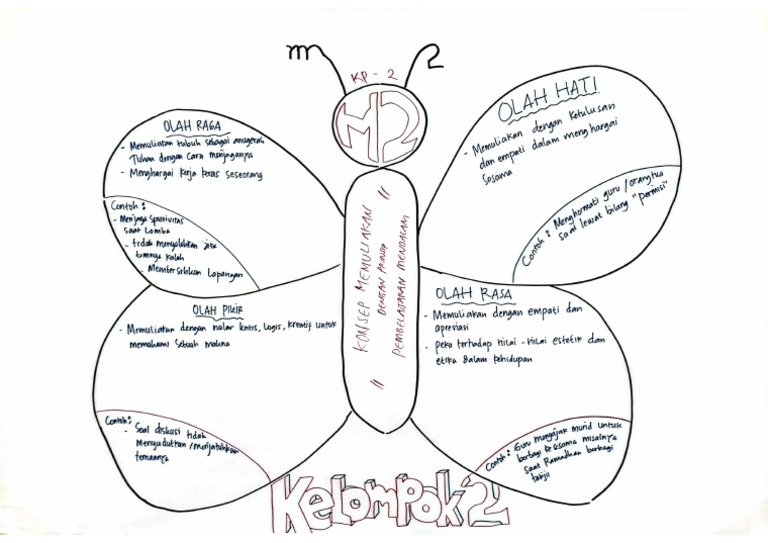 KP - 2
M2
OLAH RAGA
- Memuliakan tubuh sebagai anugerah
Tuhan dengan cara menjaganya
- Menghargai kerja keras seseorang
Contoh :
- Menjaga sportivitas
saat lomba
- tidak menyalahkan jika
timnya kalah
- Membersihkan lapangan
OLAH HATI
- Memuliakan dengan ketulusan
dan empati dalam menghargai
sesama
Contoh : Menghormati guru / orangtua
saat lewat bilang "permisi"
" KONSEP MEMULIAKAN
DENGAN PRINSIP
PEMBELAJARAN MENDALAM "
OLAH PIKIR
- Memuliakan dengan nalar kritis, logis, kreatif untuk
memahami sebuah makna
Contoh :
- Saat diskusi tidak
menyudutkan / menjatuhkan
temannya
OLAH RASA
- Memuliakan dengan empati dan
apresiasi
- peka terhadap nilai - nilai estetik dan
etika dalam kehidupan
Contoh : Guru mengajak murid untuk
berbagi ke sesama misalnya
saat Ramadhan berbagi
takjil
Kelompok 2